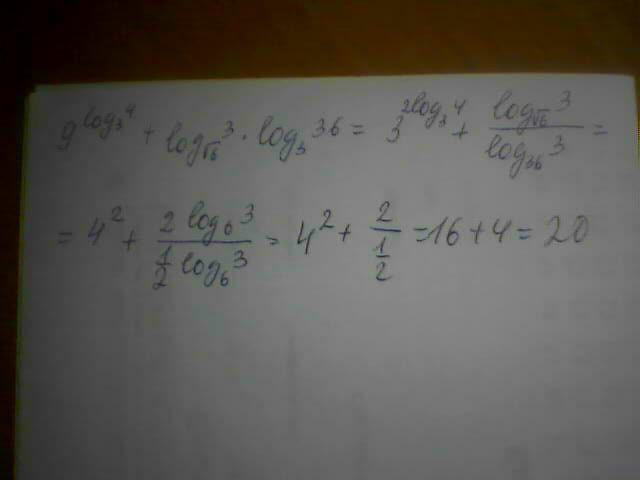 9^{log_3 4} + log_{√6} 3 · log_3 36 = 3^{2log_3 4} + \frac{log_{√6} 3}{log_{36} 3} =
= 4^2 + \frac{2 log_6 3}{\frac{1}{2} log_6 3} = 4^2 + \frac{2}{\frac{1}{2}} = 16 + 4 = 20